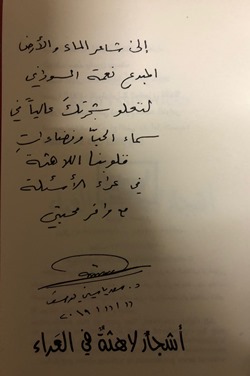 إلى شاعر الماء والأرض
المبدع نعمة السوداني
لتعلو شجرتك عالياً في
سماء الحب وفضاءات
قلوبنا اللاهثة
في عراء الأسئلة
مع وافر محبتي
د. سعد ياسين يوسف
٢٠١٩
أشجارٌ لاهثةٌ في العَراء